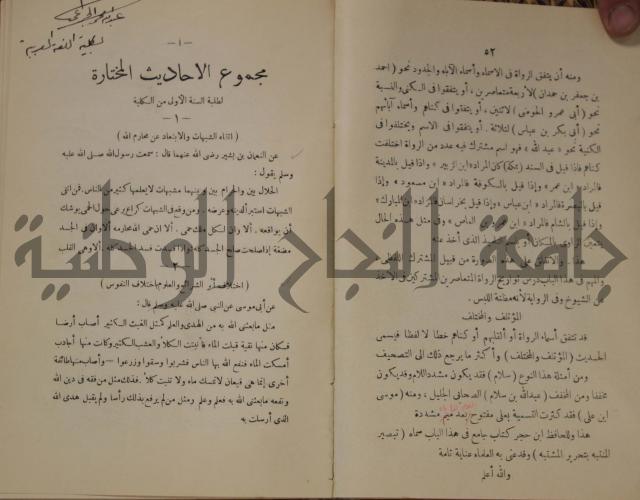 ٥٢
ومنه أن يتفق الرواة في الاسماء وأسماء الآباء والجدود نحو ( احمد
بن جعفر بن حمدان ) لأربعة متعاصرين ، أو يتفقوا في الكنى والنسبة
نحو ( أبي عمرو الحوضى ) لاثنين ، أو يتفقوا في كناهم وأسماء آبائهم
نحو ( أبي بكر بن عياش ) لثلاثة . أو يتفقوا في الاسم ويختلفوا في
الكنية نحو « عبد الله » فهو اسم مشترك فيه عدد من الرواة اختلفت
كناهم فاذا قيل في السند (بمكة) كان المراد « ابن الزبير » واذا قيل بالمدينة
فالمراد « ابن عمر » وإذا قيل بالكوفة فالمراد « ابن مسعود » وإذا
قيل بالبصرة فالمراد « ابن عباس » وإذا قيل بخراسان فالمراد « ابن المبارك »
وإذا قيل بالشام فالمراد « ابن عمرو بن العاص » وفي مثل هذه الحال
يتعين الراوي بالمكان أو التلميذ الذى أخذ عنه
هذا والاتفاق على هذه الصورة من قبيل المشترك اللفظى ،
والمهم في هذا الباب درس تواريخ الرواة المتعاصرين المشتركين في الأخذ
عن الشيوخ وفي الرواية لأنه مظنة اللبس .
المؤتلف والمختلف
قد تتفق أسماء الرواة أو ألقابهم أو كناهم خطا لا لفظا فيسمى
الحديث ( المؤتلف والمختلف ) وأكثر ما يرجع ذلك الى التصحيف
ومن أمثلة هذا النوع ( سلام ) فقد يكون مشدد اللام وقد يكون
مخففا ومن المخفف ( عبدالله بن سلام ) الصحابي الجليل ، ومنه ( موسى
ابن على ) فقد كثرت التسمية بعلى مفتوح
مشددة
هذا وللحافظ ابن حجر كتاب جامع في هذا الباب سماه ( تبصير
المنتبه بتحرير المشتبه ) وقد عنى به العلماء عناية تامة
والله أعلم
— ١ —
مجموع الاحاديث المختارة
لطلبة السنة الأولى من الكلية
— ١ —
( اتقاء الشبهات والابتعاد عن محارم الله )
عن النعمان بن بشير رضى الله عنهما قال : سمعت رسول الله صلى الله عليه
وسلم يقول :
الحلال بين والحرام بين وبينهما مشبهات لا يعلمها كثير من الناس . فمن اتقى
الشبهات استبرأ لدينه وعرضه . ومن وقع في الشبهات كراع يرعى حول الحمى يوشك
أن يواقعه . ألا وإن لكل ملك حمى . ألا ان حمى الله محارمه ألا وان في الجسد
مضغة إذا صلحت صلح الجسد كله وإذا فسدت فسد الجسد كله ألا وهى القلب
٢
( اختلاف تأثر الشرائع والعلوم باختلاف النفوس )
عن أبى موسى عن النبي صلى الله عليه وسلم قال :
مثل ما بعثنى الله به من الهدى والعلم كمثل الغيث الكثير أصاب أرضا
فكان منها نقية قبلت الماء فأنبتت الكلأ والعشب الكثير وكانت منها أجادب
أمسكت الماء فنفع الله بها الناس فشربوا وسقوا وزرعوا — وأصاب منها طائفة
أخرى إنما هى قيعان لا تمسك ماء ولا تنبت كلأ . فذلك مثل من فقه في دين الله
ونفعه ما بعثنى الله به فعلم وعلم ومثل من لم يرفع بذلك رأسا ولم يقبل هدى الله
الذى أرسلت به
جامعة النجاح الوطنية